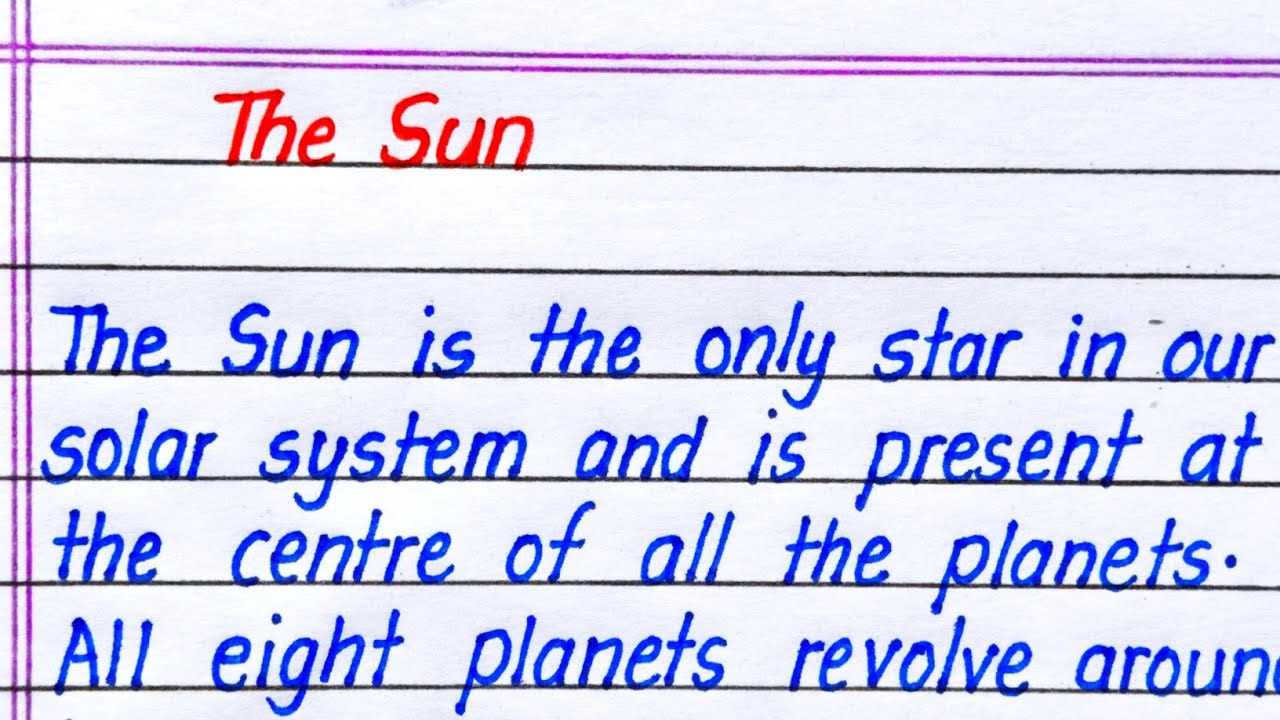 The Sun
The Sun is the only star in our
solar system and is present at
the centre of all the planets.
All eight planets revolve